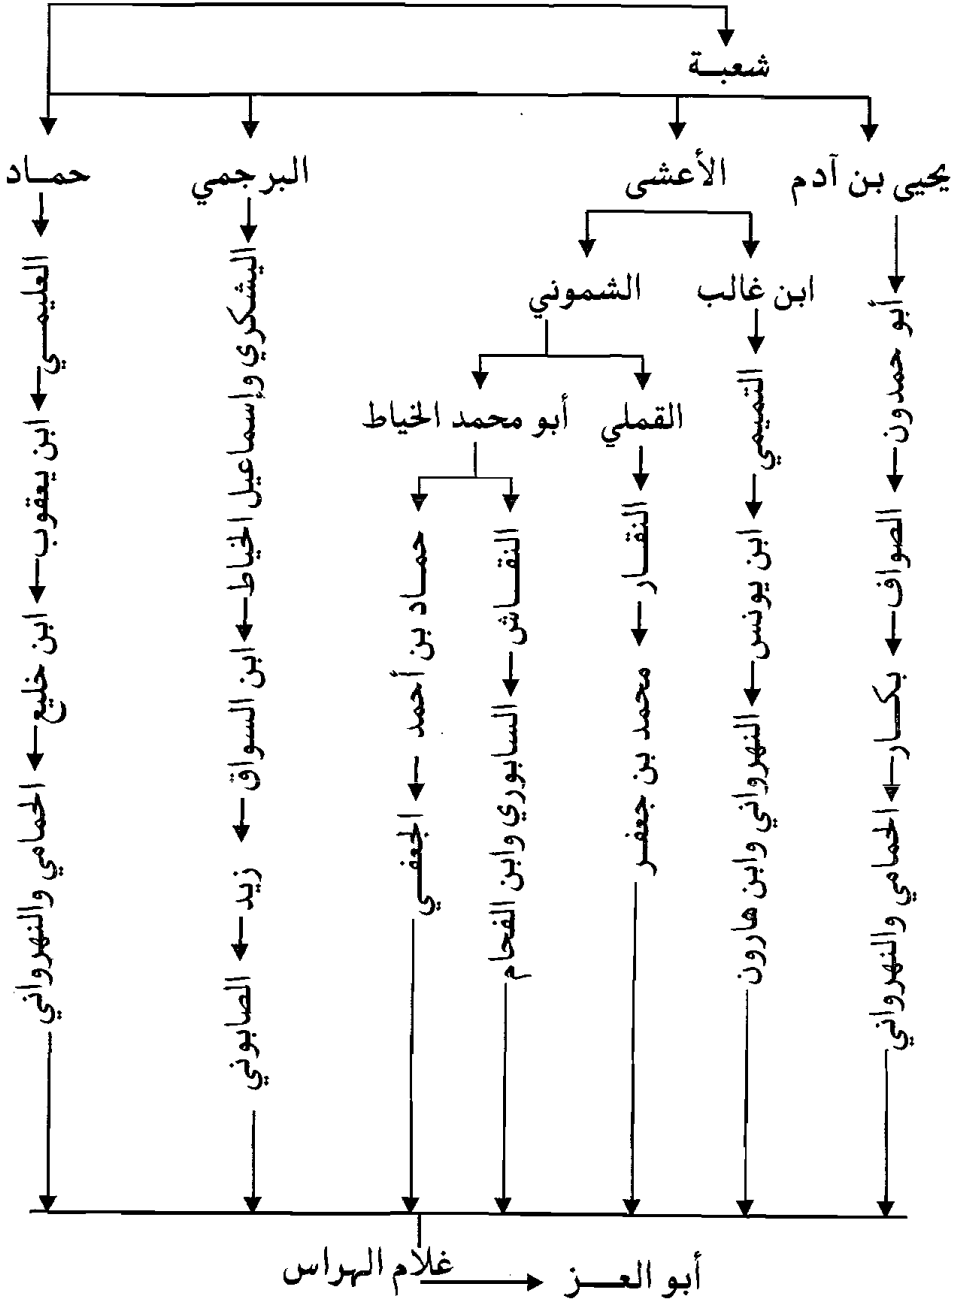 شعبة
يحيى بن آدم
الأعشى
البرجمي
حماد
ابن غالب
الشموني
القملي
أبو محمد الخياط
أبو حمدون
الصواف
بكار
الحمامي والنهرواني
التميمي
ابن يونس
النهرواني وابن هارون
النقار
محمد بن جعفر
النقاش
السابوري وابن الفحام
حماد بن أحمد
الجعفي
اليشكري وإسماعيل الخياط
ابن السواق
زيد
الصابوني
العليمي
ابن يعقوب
ابن خليع
الحمامي والنهرواني
غلام الهراس
أبو العز